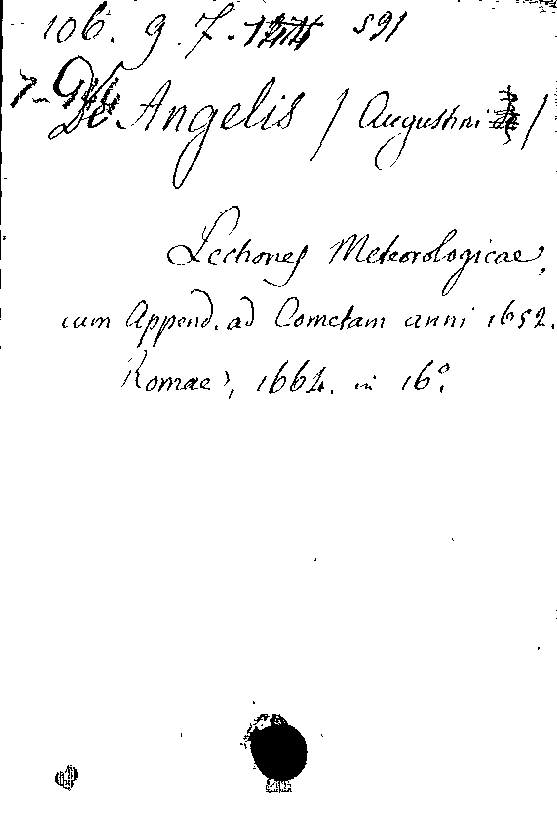 106. 9. 7. 591
7-
De Angelis / Augustini /
Lectiones Meteorologicae,
cum Append. ad Cometam anni 1652.
Romae, 1664. in 16º.